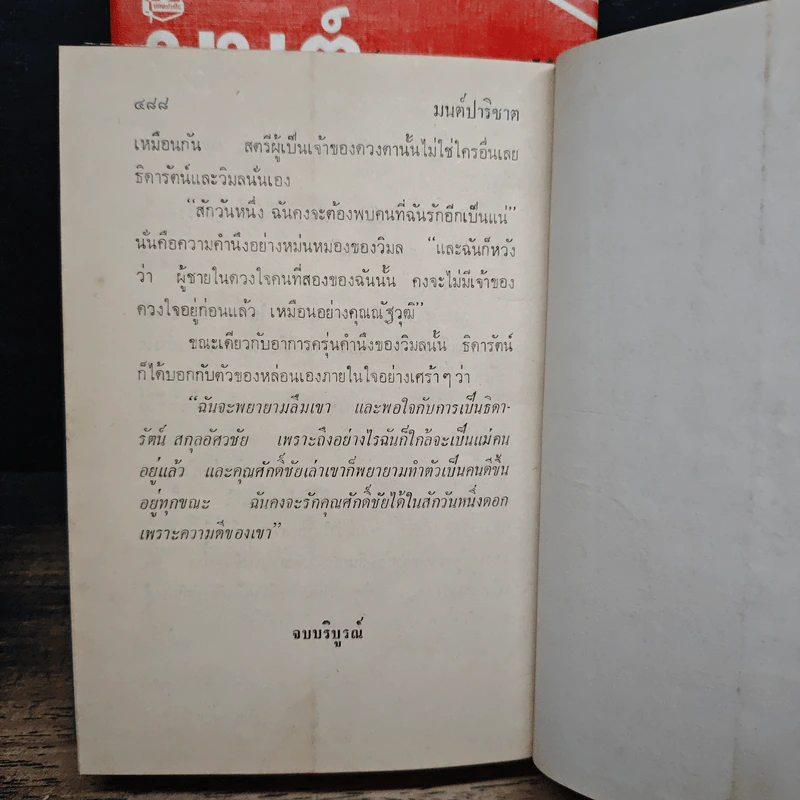 มนต์
๔๘๘
มนต์ปาริชาต
เหมือนกัน สตรีผู้เป็นเจ้าของดวงตานั้นไม่ใช่ใครอื่นเลย
ธิดารัตน์และวิมลนั่นเอง
“สักวันหนึ่ง ฉันคงจะต้องพบคนที่ฉันรักอีกเป็นแน่”
นั่นคือความคำนึงอย่างหม่นหมองของวิมล “และฉันก็หวัง
ว่า ผู้ชายในดวงใจคนที่สองของฉันนั้น คงจะไม่มีเจ้าของ
ดวงใจอยู่ก่อนแล้ว เหมือนอย่างคุณณัฐวุฒิ”
ขณะเดียวกับอาการครุ่นคำนึงของวิมลนั้น ธิดารัตน์
ก็ได้บอกกับตัวของหล่อนเองภายในใจอย่างเศร้าๆ ว่า
“ฉันจะพยายามลืมเขา และพอใจกับการเป็นธิดา-
รัตน์ สกุลอัศวชัย เพราะถึงอย่างไรฉันก็ใกล้จะเป็นแม่คน
อยู่แล้ว และคุณศักดิ์ชัยเล่าเขาก็พยายามทำตัวเป็นคนดีขึ้น
อยู่ทุกขณะ ฉันคงจะรักคุณศักดิ์ชัยได้ในสักวันหนึ่งดอก
เพราะความดีของเขา”
จบบริบูรณ์